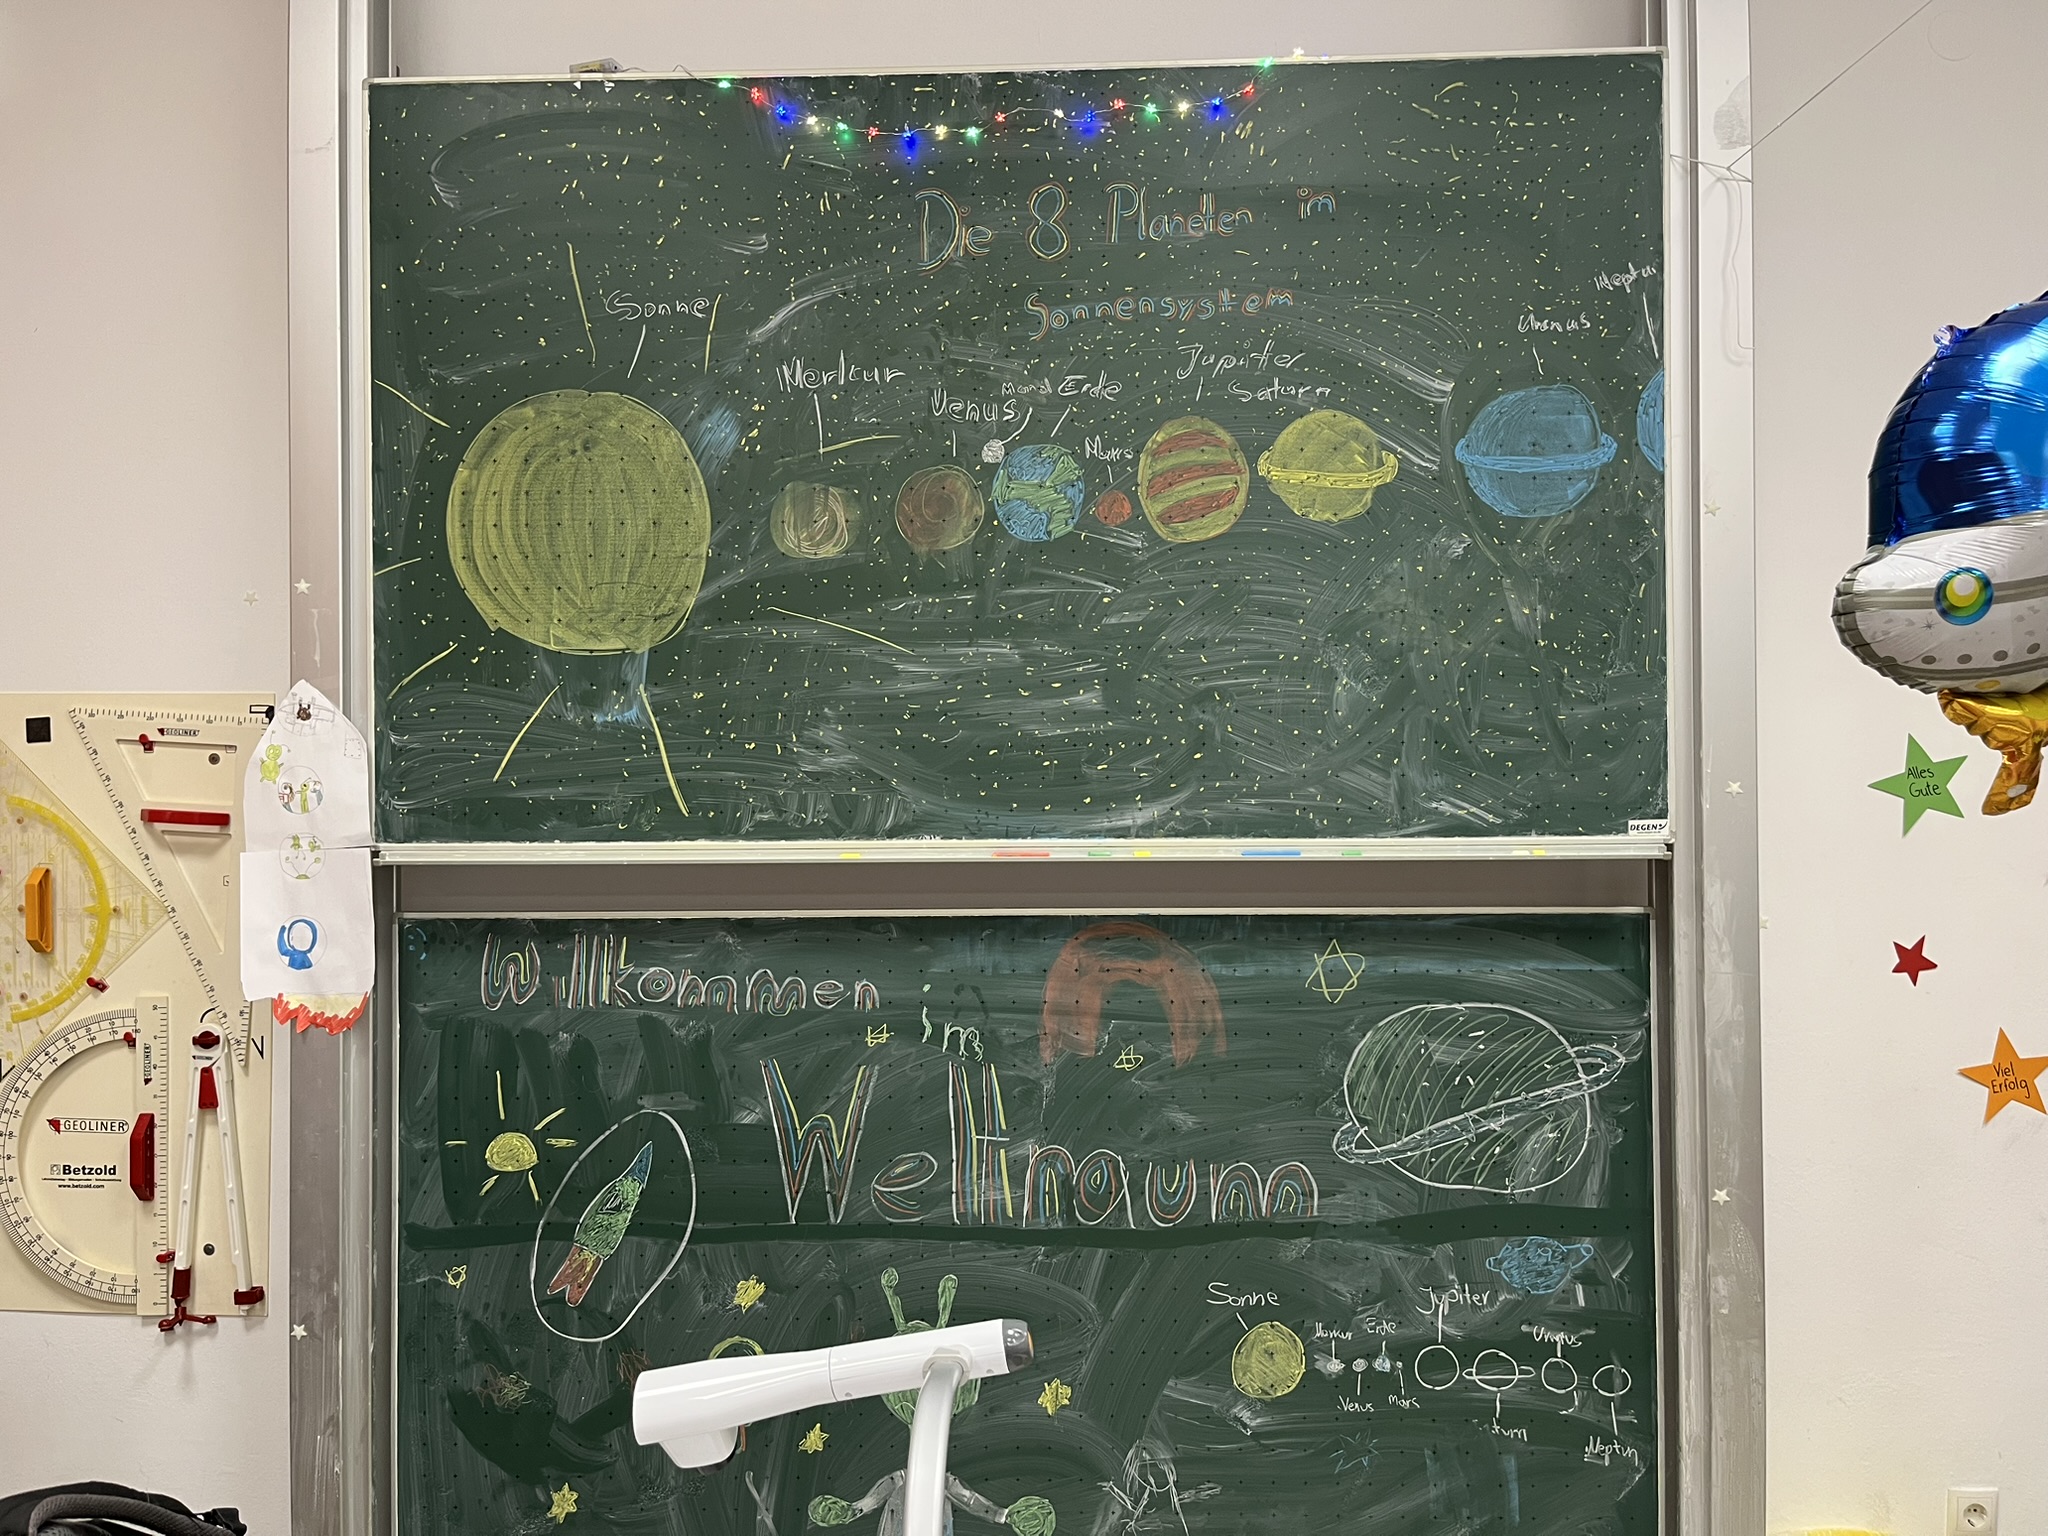 Die 8 Planeten im
Sonnensystem
Sonne
Merkur
Venus
Mond
Erde
Mars
Jupiter
Saturn
Uranus
Neptu
DEGEN
Willkommen
im
Weltraum
Sonne
Merkur
Venus
Erde
Mars
Jupiter
turn
Uranus
Neptun
GEOLINER
GEOLINER
GEOLINER
Betzold
www.betzold.com
Alles
Gute
Viel
Erfolg